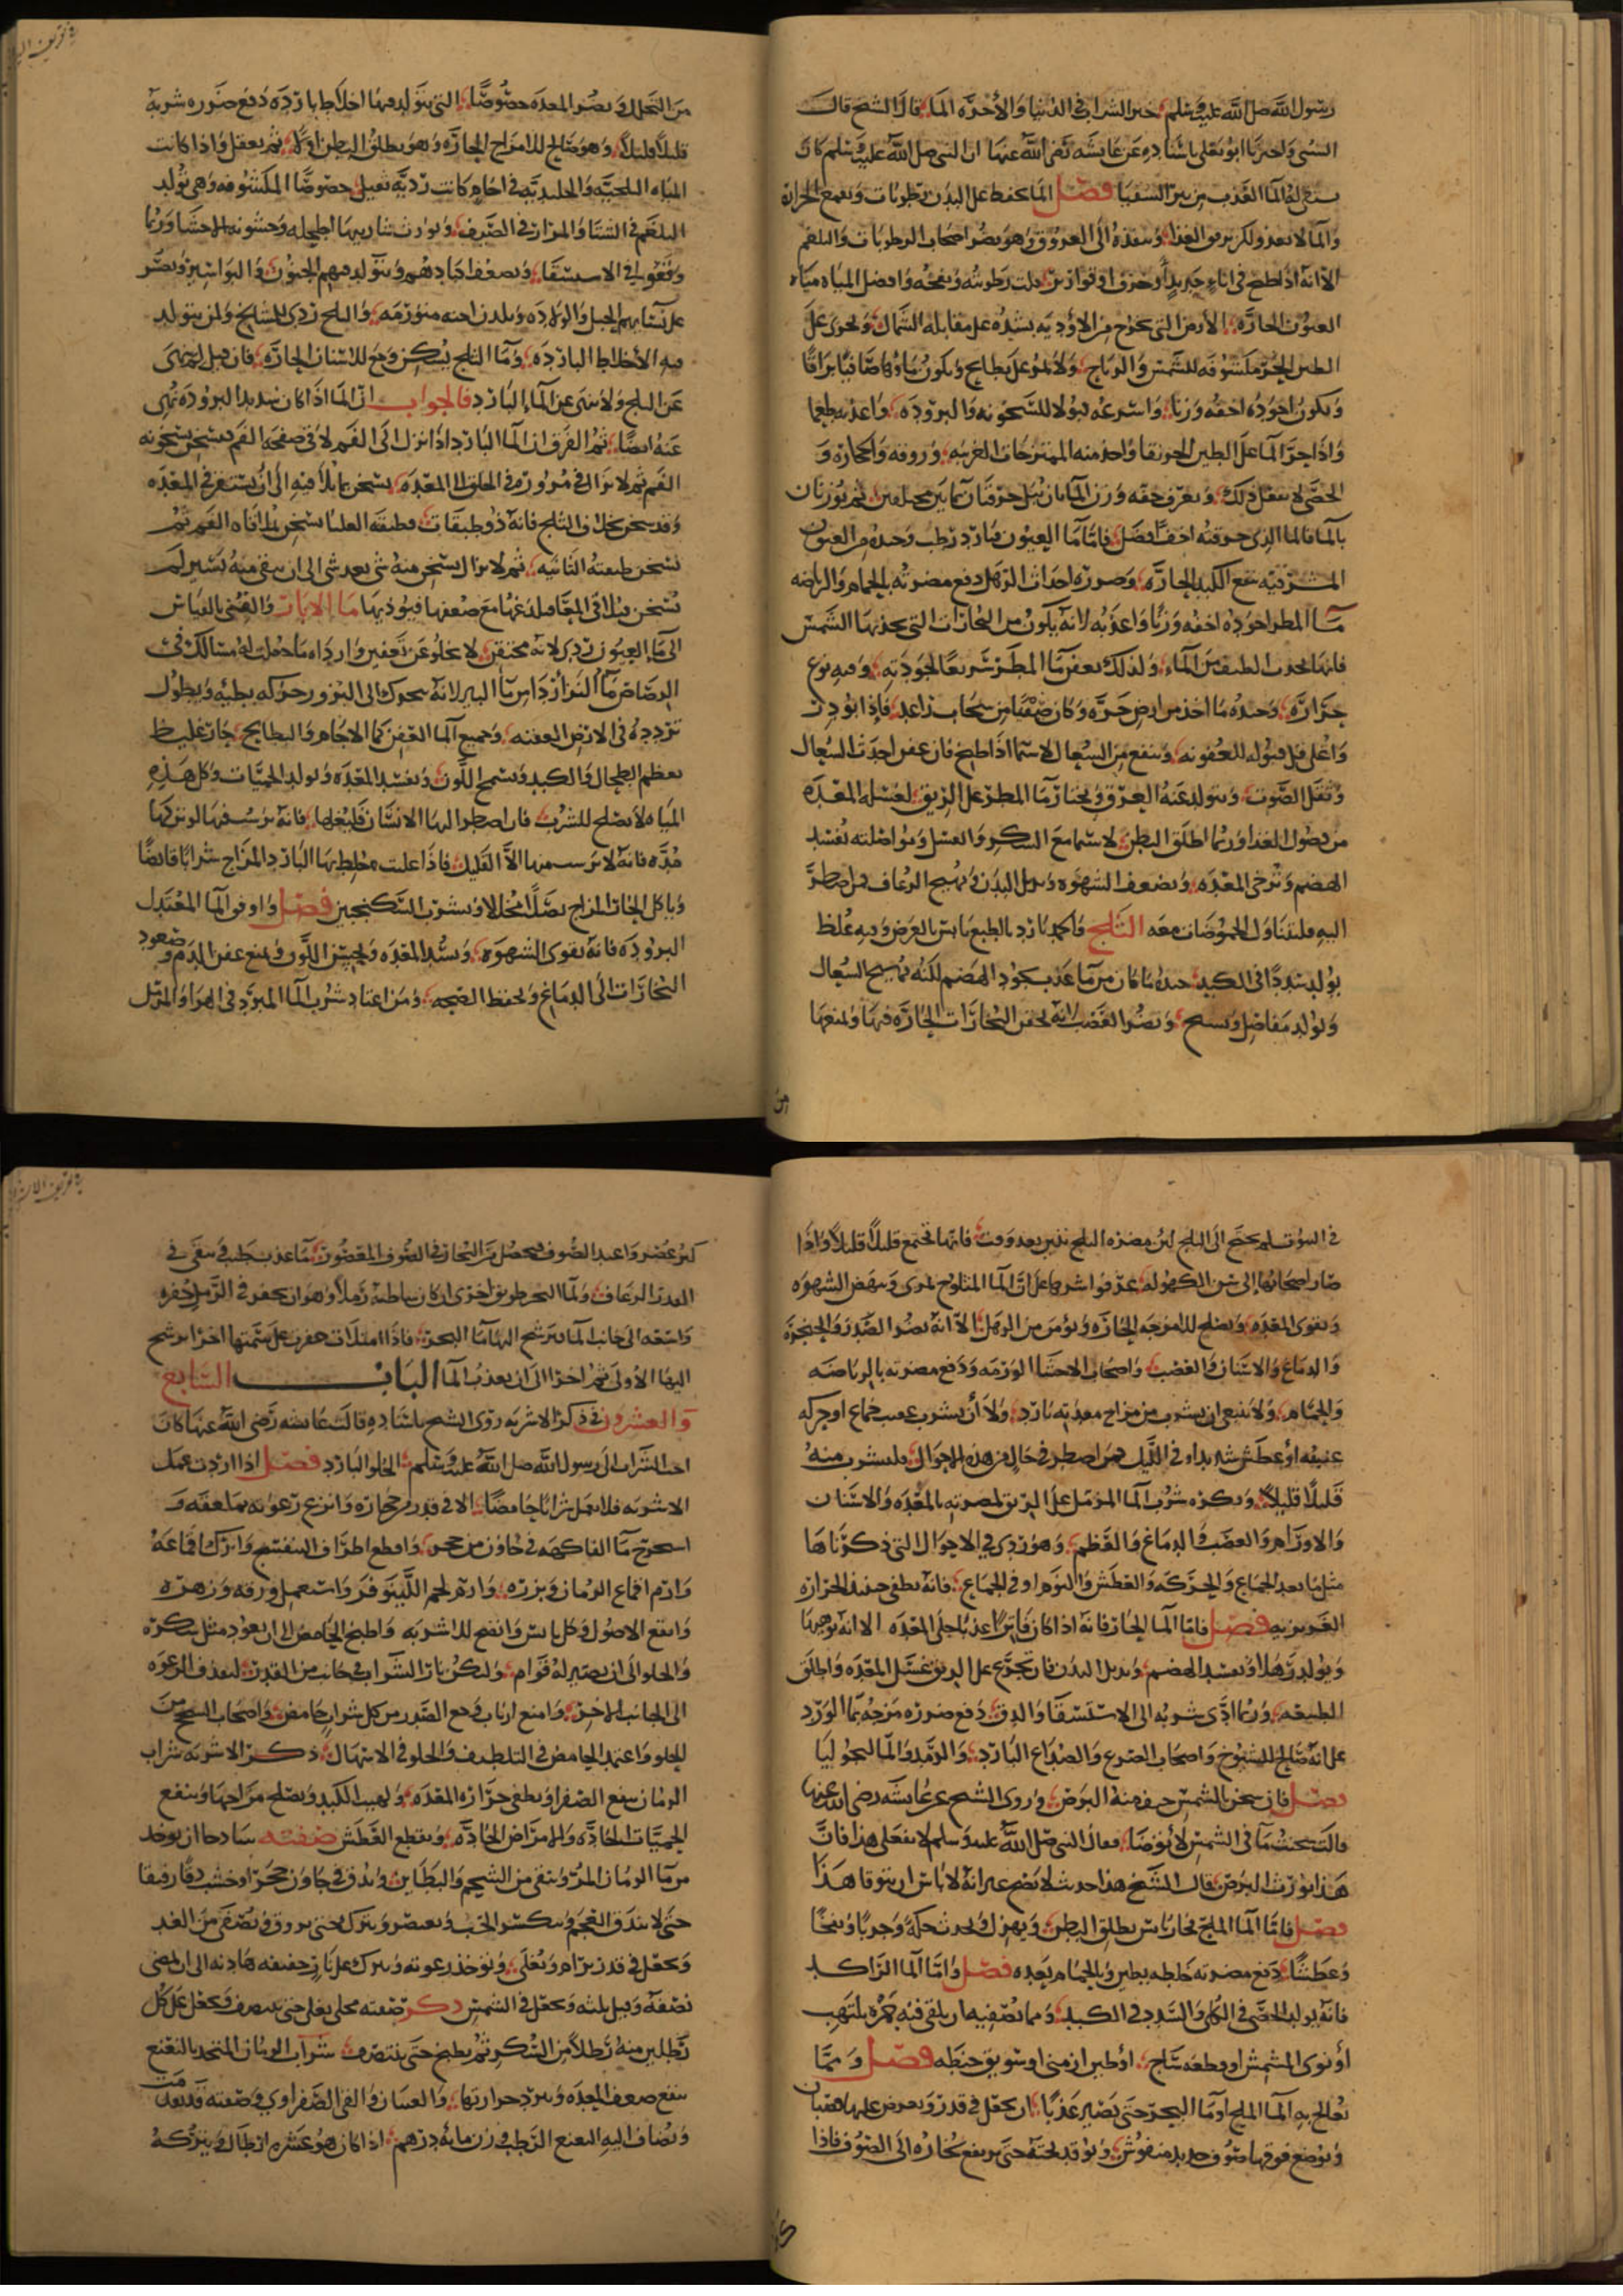 رسول الله صلى الله عليه وسلم خير الشراب في الدنيا والآخرة الماء قال الشيخ قال
السني وأخبرنا أبو يعلى باسناده عن عائشة رضي الله عنها أن النبي صلى الله عليه وسلم كان
يستعذب له الماء العذب من بير السقيا فصل الماء يحفظ على البدن رطوبات ويقمع الحرارة
والماء لا يغذو لكن يرقق الغذاء وينفذه إلى العروق وهو يضر أصحاب الرطوبات والبلغم
إلا أنه إذا طبخ في إناء جديد أو خزف قلت رطوبته ونفخه وأفضل المياه مياه
العيون الحارة الأرض التي تخرج من الأودية بشدة على مقابلة الشمال وتجري على
الطين الحر مكشوفة للشمس والرياح ولا تمر على بطايح ويكون ماؤها صافيا براقا
ويكون أجوده أخفه وزنا وأسرعه قبولا للسخونة والبرودة وأعذبه طعما
وإذا جرى الماء على الطين الحر نقا وأخذ منه الممتزجات الغريبة وروقه والحجارة و
الحصى لا يفعل ذلك ويعرف خفة وزن الماء بأن تبل خرقتان بماين مختلفين ثم يوزنان
بالماء فالماء الذي خرقته أخف أفضل فأما ماء العيون فبارد رطب وجيده من العيون
المشرقية ينفع الكبد الحارة وضرره احداث الترهل دفع مضرته بالحمام والرياضة
ماء المطر أجوده أخفه وزنا وأعذبه لأنه يكون من البخارات التي تجذبها الشمس
فانها تجذب اللطيف من الماء ولذلك يعفن ماء المطر سريعا لجودته وفيه نوع
حرارة وجيده ما أخذ من أرض حرة وكان صيفيا من سحاب راعد فإذا بودرت
وأغلي قل قبوله للعفونة وينفع من السعال لا سيما إذا طبخ فان عفن أحدث السعال
وثقل الصوت ويتولد عنه العرق ويختار ماء المطر على الريق لغسله المعدة
من فضول الغذاء وربما أطلق البطن لا سيما مع السكر والعسل ومواصلته تفسد
الهضم وترخي المعدة ويضعف الشهوة ويرهل البدن ويهيج الرعاف فمن اضطر
اليه فليتناول الحموضات معه الثلج والجمد بارد بالطبع يابس بالعرض وفيه غلظ
يولد سددا في الكبد جيده ما كان من ماء عذب يجود الهضم لكنه يهيج السعال
ويولد مفاصل ويضر العصب لأنه يحقن البخارات الحارة فيها ويمنعها
من التحلل ويضر المعدة خصوصا التي يتولد فيها أخلاط باردة دفع ضرره شربه
قليلا قليلا وهو صالح للأمزاج الحارة وهو يطلق البطن أولا ثم يعقل وإذا كانت
المياه الثلجية والجليدية في آجام كانت ردية ثقيلة خصوصا المكشوفة وهي تولد
البلغم في الشتاء والمرار في الصيف ويورث شاربيها أطحلة وخشونة الأحشاء وربما
وقعوا في الاستسقاء ويضعف أكبادهم ويتولد فيهم الجنون والبواسير ويضر
على نسايهم الحبل والولادة ويلدن أجنة متورمة والثلج ردي للمشايخ ولمن يتولد
فيه الأخلاط الباردة وماء الثلج يسكن وجع الأسنان الحارة فان قيل لم نهى
عن الثلج ولا نهي عن الماء البارد فالجواب ان الماء إذا كان شديد البرودة نهي
عنه أيضا ثم الفرق ان الماء البارد إذا نزل الى الفم لاقى صفحة الفم فسخن بسخونة
الفم ثم لا يزال في مروره في الحلق الى المعدة يسخن بما يلاقيه إلى أن يستقر في المعدة
وقد سخن بخلاف الثلج فانه ذو طبقات فطبقته العليا تسخن بملاقاة الفم ثم
تسخن طبقته الثانية ثم لا يزال يسخن منه شي بعد شي الى ان يبقى منه يسير لم
يسخن فيلاقي المعا فيلذعها مع ضعفها فيوذيها ماء الابار والقني بالقياس
الى ماء العيون ردي لأنه محتقن لا يخلو عن تعفين وارداه ما جعلت له مسالك في
الرصاص ماء النز أردا من ماء البير لانه يتحرك الى البروز حركة بطيئة ويطول
تردده في الارض العفنة وجميع الماء العفن كماء الآجام والبطايح حار غليظ
يعظم الطحال والكبد ويسمج اللون ويفسد المعدة ويولد الحميات وكل هذه
المياه لا تصلح للشرب فان اضطر اليها الانسان فليغلها فانه يرسب فيها لو تركها
مدة فانه لا يرسب منها الا القليل فاذا غليت خلط بها البارد المزاج شرابا قابضا
ويأكل الحار المزاج بصلا مخللا ويشرب السكنجبين فصل واوفق الماء المعتدل
البرودة فانه يقوي الشهوة ويشد المعدة ويحسن اللون ويمنع عفن الدم وصعود
البخارات الى الدماغ ويحفظ الصحة ومن اعتاد شرب الماء المبرد في الهواء والمزمل
في السوق لم يحتج الى الثلج لان مضرة الثلج تبين بعد وقت فانها تجتمع قليلا قليلا وإذا
صار أصحابها إلى سن الكهولة عرفوا شرها على ان الماء المثلوج يمري وينهض الشهوة
ويقوي المعدة ويصلح للأمزجة الحارة ويؤمن من الترهل الا انه يضر الصدر والحنجرة
والدماغ والاسنان والعصب واصحاب الاحشاء الورمة ودفع مضرته بالرياضة
والحمام ولا ينبغي ان يشرب من مزاج معدته بارد ولا أن يشرب عقيب جماع او حركة
عنيفة أو عطش شديد أو في الليل فمن اضطر في حال من هذه الاحوال فليشرب منه
قليلا قليلا ويكره شرب الماء المزمل على الريق لمضرته بالمعدة والاسنان
والاورام والعصب والدماغ والعظم وهو ردي في الاحوال التي ذكرناها
مثل ما بعد الجماع والحركة والعطش والنوم او في الجماع فانه يطفي حينئذ الحرارة
الغريزية فصل فاما الماء الحار فانه اذا كان فاترا عذبا جلى المعدة الا انه يوهنها
ويولد رهلا ويفسد الهضم ويذبل البدن فان تجرع على الريق غسل المعدة واطلق
الطبيعة وربما ادى شربه الى الاستسقاء والدق دفع ضرره مزجه بماء الورد
على انه صالح للشيوخ واصحاب الصرع والصداع البارد والرمد والماليخوليا
فصل فان سخن بالشمس خيف منه البرص وروى الشيخ عن عائشة رضي الله عنها
قالت سخنت ماء في الشمس لأتوضأ فقال النبي صلى الله عليه وسلم لا تفعلي هذا فان
هذا يورث البرص قال الشيخ هذا حديث لا يصح غير انه لا باس ان يتوقا هذا
فصل فاما الماء الملح فحار يابس يطلق البطن ويهزل ويحدث حكة وجربا ونفخا
وعطشا دفع مضرته خلطه بطين وبالحمام بعده فصل واما الماء الراكد
فانه يولد الحصى في الكلى والسدد في الكبد ومما يصفيها ان يلقى فيه جمرة يلتهب
أو نوى المشمش او قطعة ساج أو طين ارمني او سويق حنطة فصل ومما
يعالج به الماء الملح او ماء البحر حتى يصير عذبا ان يجعل في قدر ويعرض عليها قضبان
ويوضع فوقها صوف جديد منفوش ويوقد تحته حتى يرتفع بخاره الى الصوف فاذا
كثر عصر واعيد الصوف فيحصل من البخار في الصوف المعصور ماء عذب طيب ويبقى في
القدر الزعاق ولماء البحر طريق أخرى ان كان شاطئه رملا وهو ان يحفر في الرمل حفرة
واسعة الى جانب الماء يترشح اليها ماء البحر فاذا امتلات حفرت على سمتها اخرى لترشح
اليها الأولى ثم اخرى الى ان يعذب الماء الباب السابع
والعشرون في ذكر الاشربة روى الشيخ باسناده قال عن عائشة رضي الله عنها كان
احب الشراب الى رسول الله صلى الله عليه وسلم الحلو البارد فصل اذا اردت عمل
الاشربة فلا تعمل شرابا حامضا الا في قدر من حجارة وانزع رغوته بملعقة و
استخرج ماء الفاكهة في هاون من حجر واقطع اطراف البنفسج واترك اقماعه
وارم اقماع الرمان وبزره وارم لحم اللينوفر واستعمل ورقه وزهره
وانقع الاصول وكل يابس وانفع للاشربة واطبخ الحامض الى ان يعود مثل سكره
والحلو الى ان يصير له قوام ولتكن نار الشراب في جانب من القدر ليقذف الرغوة
الى الجانب الاخر وامنع ارباب وجع الصدر من كل شراب حامض واصحاب السحج من
الحلو واعتمد الحامض في التلطيف والحلو في الاسهال ذكر الاشربة شراب
الرمان ينفع الصفرا ويطفي حرارة المعدة ولهيب الكبد ويصلح مزاجها وينفع
الحميات الحادة والامراض الحادة ويقطع العطش صفته ساذجا ان يوخذ
من ماء الرمان المز وينقى من الشحم والبطاين ويدق في جاون حجر او خشب دقا رفيقا
حتى لا يندق العجم وينكسر الحب ويعصر ويترك حتى يروق ويصفى من الغد
ويجعل في قدر برام ويغلى ويوخذ رغوته ويترك على نار خفيفة هادئة الى ان يمضي
نصفه وقيل ثلثه ويجعل في الشمس ذكر صفته محلى يغلى حتى ينتصف ويجعل على كل
رطلين منه رطلا من السكر ثم يطبخ حتى ينتصف شراب الرمان المتخذ بالنعنع
ينفع ضعف المعدة ويبرد حرارتها والغثيان والقي الصفراوي وصفته قد تقدمت
ويضاف اليه النعنع الرطب وزن مائة درهم اذا كان هو عشرة ارطال ويتركه